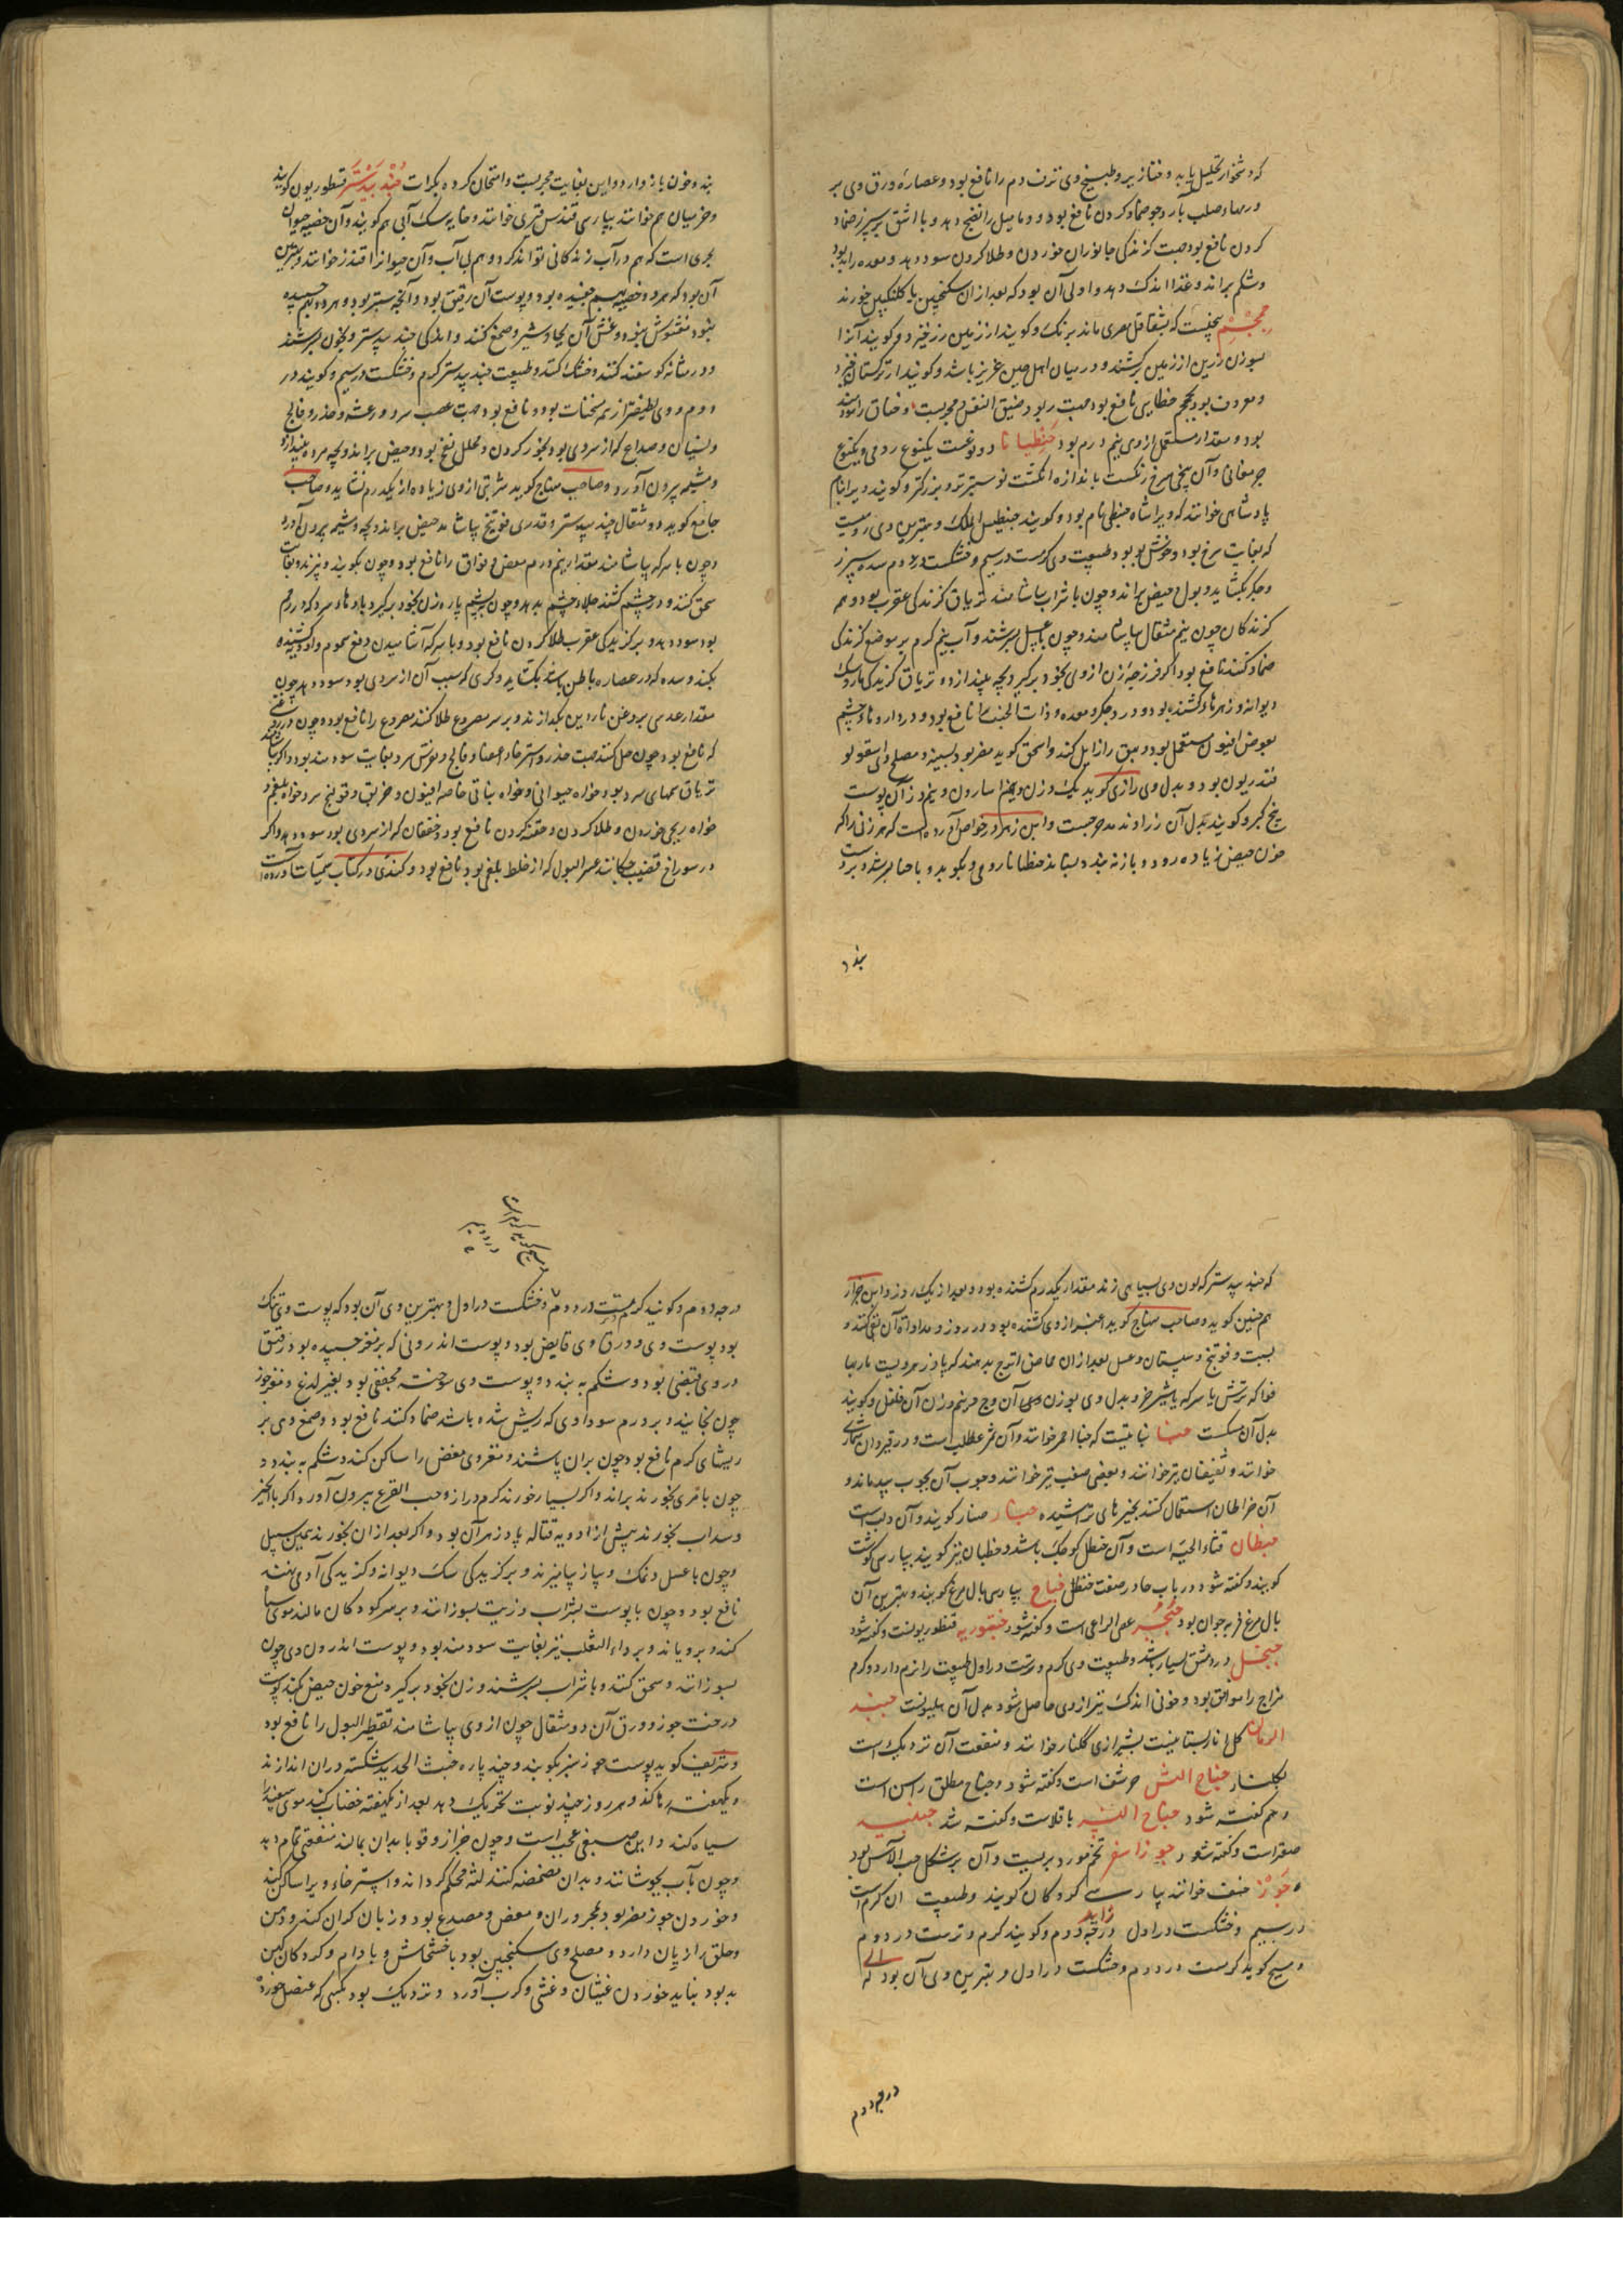 که دشخوار تحلیل یابد و خنازیر و طبیخ وی نزف دم را نافع بود و عصاره ورق وی بر
ورمهاء صلب بارد چو ضماد کردن نافع بود و دمامیل را نضج دهد و با اشق بر سپرز ضماد
کردن نافع بود جهت گزندگی جانوران خوردن و طلا کردن سود دهد و معده را بد بود
و شکم براند و غذا اندک دهد و اولی آن بود که بعد از آن سکنجبین یا کلنکبین خورند
بیخیست که بشقاقل مصری ماند برنگ و گویند از زمین زر خیزد و گویند آنرا
بسوزن زرین از زمین برکشند و در میان اهل چین عزیز باشد و گویند از ترکستان خیزد
و معروف بود بجم خطایی نافع بود جهت ربو و ضیق النفس و مجربست و خناق را سود
بود و مقدار مستعمل از وی نیم درم بود جنطیانا دو نوعست یکنوع رومی و یکنوع
جرمقانی و آن بیخی سرخ رنگست باندازه انگشت و سبتر تر و بزرگتر و گویند ویرا بنام
پادشاهی خوانند که ویرا شاه جنطی نام بود و گویند جنطیس الملک و بهترین وی رومیست
که بغایت سرخ بود و خوش بو بود و طبیعت وی گرمست در سیم و خشکست در دوم سده سپرز
و جگر بگشاید و بول و حیض براند و چون با شراب بیاشامند تریاق گزندگی عقرب بود و همه
گزندگان چون نیم مثقال بیاشامند و چون با عسل بسرشند و آب نیم گرم بر موضع گزندگی
ضماد کنند نافع بود اگر فرزجه زن از وی بخود برگیرد بچه بیندازد و تریاق گزیدگی مار و سگ
دیوانه و زهرهاء کشنده بود و درد جگر و معده و ذات الجنب را نافع بود و در داروهاء چشم
بعوض افیون مستعمل بود و بهق را زایل کند و اسحق گوید مضر بود بسینه و مصلح وی اسقولو
قندریون بود و بدل وی رازی گوید یک وزن و نیم اسارون و نیم وزن آن پوست
بیخ کبر و گویند بدل آن زراوند مدحرجست و ابن زهر در خواص آورده است که هر زنی را که
خون حیض زیاده رود و باز نه بندد بستاند جنطیانا رومی و بکوبد و با حنا بسرشد و بر دست
بندد
بندد و خون باز دارد و این بغایت مجربست و امتحان کرده بکرات جندبیدستر قسطوریون گویند
و خزمیان هم خوانند بپارسی قندس قیری خوانند و خایه سگ آبی هم گویند و آن خصیه حیوان
بحری است که هم در آب زندگانی تواند کرد و هم بی آب و آن حیوان را قندز خوانند و بهترین
آن بود که هر دو خصیه بهم چفسیده بود و پوست آن رقیق بود و آنچه سبتر بود و هر دو بهم چسپیده
نبود مغشوش بود و غش آن بجاوشیر و صمغ کنند و اندکی جندبیدستر و بخون بسرشند
و در مثانه گوسفند کنند و خشک کنند و طبیعت جندبیدستر گرم و خشکست در سیم و گویند در
دوم و وی لطیفتر از همه مسخنات بود و نافع بود جهت عصب سرد و رعشه و خدر و فالج
و نسیان و صداع که از سردی بود بخور کردن و محلل نفخ بود و حیض براند و بچه مرده بیندازد
و مشیمه بیرون آورد و صاحب منهاج گوید شربتی از وی زیاده از یکدرم نشاید و صاحب
جامع گوید دو مثقال جندبیدستر و قدری فوتنج بیاشامد حیض براند و بچه و مشیمه بیرون آورد
و چون با سرکه بیاشامند مقدار نیم درم مغص و فواق را نافع بود و چون بکوبند و بپزند و بغایت
سحق کنند و در چشم کشند جلاء چشم بدهد و چون به پشم پاره زن بخود برگیرد بادهاء سرد که در رحم
بود سود دهد و بر گزیدگی عقرب طلا کردن نافع بود و با سرکه آشامیدن دفع سموم و ادویه کشنده
بکند و سده که در عصاره باطن باشد بگشاید و کری که بسبب آن از سردی بود سود دهد چون
مقدار عدسی بروغن ناردین بگدازند و بر سر مصروع طلا کنند مصروع را نافع بود
که نافع بود چون حل کنند جهت خدر و استرخاء اعضا و فالج و نقرس سرد بغایت سودمند بود و اگر بیاشامند
تریاق سمهای سرد بود خواه حیوانی و خواه نباتی خاصه افیون و خربق و قولنج سرد خواه بلغمی و
خواه ریحی خوردن و طلا کردن و حقنه کردن نافع بود و خفقان که از سردی بود سود دهد و اگر
در سوراخ قضیب چکانند عسر البول که از خلط بلغمی بود نافع بود و کندی در کتاب سمیات آورده است
که جندبیدستر که لون وی بسیاهی زند مقدار یکدرم کشنده بود و بعد از یک روز و ابن جزار
هم چنین گوید و صاحب منهاج گوید اغبر از وی کشنده بود در روز و مداواة آن بقی کنند و
بشبت و فوتنج و سپستان و عسل بعد از آن حماض اترج بدهند که پادزهر ویست یا ربها
فواکه ترش یا سرکه یا شیر خر و بدل وی بوزن وی آن وج و نیم وزن آن فلفل و گویند
بدل آن مسکست جنا نباتیست که جنا احمر خوانند و آن ثمر عطلب است و در قیروان شماری
خوانند و ثعیفنان نیز خوانند و بعضی صغب نیز خوانند و چوب آن بچوب بید ماند و
آن خراطان استعمال کنند بخیرهای تراشیده جنار صنار گویند و آن دلب است
جنطان قثاء الحیه است و آن حنظل کوچک باشد و خطبان نیز گویند بپارسی کوشت
گویند و گفته شود در باب حا در صفت حنظل جناح بپارسی بال مرغ گویند و بهترین آن
بال مرغ فربه جوان بود جنجر عصی الراعی است و گفته شود جنتوریه قنطوریونست و گفته شود
جنجل در دمشق بسیار باشد و طبیعت وی گرم و ترست در اول طبیعت را نرم دارد و گرم
مزاج را موافق بود و خونی اندک نیز از وی حاصل شود بدل آن هلیونست جنبد
الرمان گل انار بستانیست بشیرازی گلنار خوانند و منفعت آن نزدیک است
بجلنار جناح النسر حرشف است و گفته شود و جناح مطلق راسن است
و هم گفته شود جناح النسر باقلاست و گفته شد
صعتر است و گفته شود جوز اسفر تخم مورد بریست و آن بر شکل حب الآس بود
جوز خسف خوانند بپارسی گردکان گویند و طبیعت آن گرم است
در سیم و خشکست در اول درجه دوم و گویند گرم و ترست در دوم
مسیح گوید گرمست در دوم و خشکست در اول و بهترین وی آن بود که
درجه دوم
درجه دوم و گویند گرمست در دوم و خشکست در اول و بهترین وی آن بود که پوست وی تنک
بود پوست وی و ورق وی قابض بود و پوست اندرونی که بر مغز چسپیده بود رقیق
در وی قبضی بود و شکم به بندد و پوست وی سوخته مجففی بود بغیر لدغ و مغز جوز
چون بخایند و بر ورم سوداوی که ریش شده باشد ضماد کنند نافع بود و صمغ وی بر
ریشهای گرم نافع بود چون بران پاشند و مغز وی مغص را ساکن کند و شکم به بندد و
چون با مری بخورند براند و اگر بسیار خورند کرم دراز و حب القرع بیرون آورد و اگر با انجیر
و سداب بخورند پیش از ادویه قتاله پادزهر آن بود و اگر بعد از آن بخورند همین سبیل
و چون با عسل و نمک و پیاز بیامیزند و بر گزیدگی سگ دیوانه و گزیدگی آدمی نهند
نافع بود و چون با پوست بشراب و زیت بسوزانند و بر سر کودکان مالند موی سیاه
کند و برویاند و بر داء الثعلب نیز بغایت سودمند بود و پوست اندرون وی چون
بسوزانند و سحق کنند و با شراب بسرشند و زن بخود برگیرد منع خون حیض بکند پوست
درخت جوز و ورق آن دو مثقال چون از وی بیاشامند تقطیر البول را نافع بود
و شریف گوید پوست جوز سبز بکوبند و چند پاره خبث الحدید شکسته در آن اندازند
و یکهفته رها کند و هر روز چند نوبت تحریک دهد بعد از یکهفته خضاب کنند موی سفید را
سیاه کند و این صبغی عجب است و چون خراز و قوبا بدان بمالند منفعتی تمام دهد
و چون بآب بجوشانند و بدان مضمضه کنند لثه محکم گرداند و استرخاء ویرا ساکن کند
و خوردن جوز مضر بود بمحروران و مغص و مصدع بود و زبان گران کند و دهن
و حلق را زیان دارد و مصلح وی سکنجبین بود یا خشخاش و بادام و گردکان کهن
بد بود نباید خوردن غثیان و غشی و کرب آورد و نزدیک بود بکسی که عنصل خورد